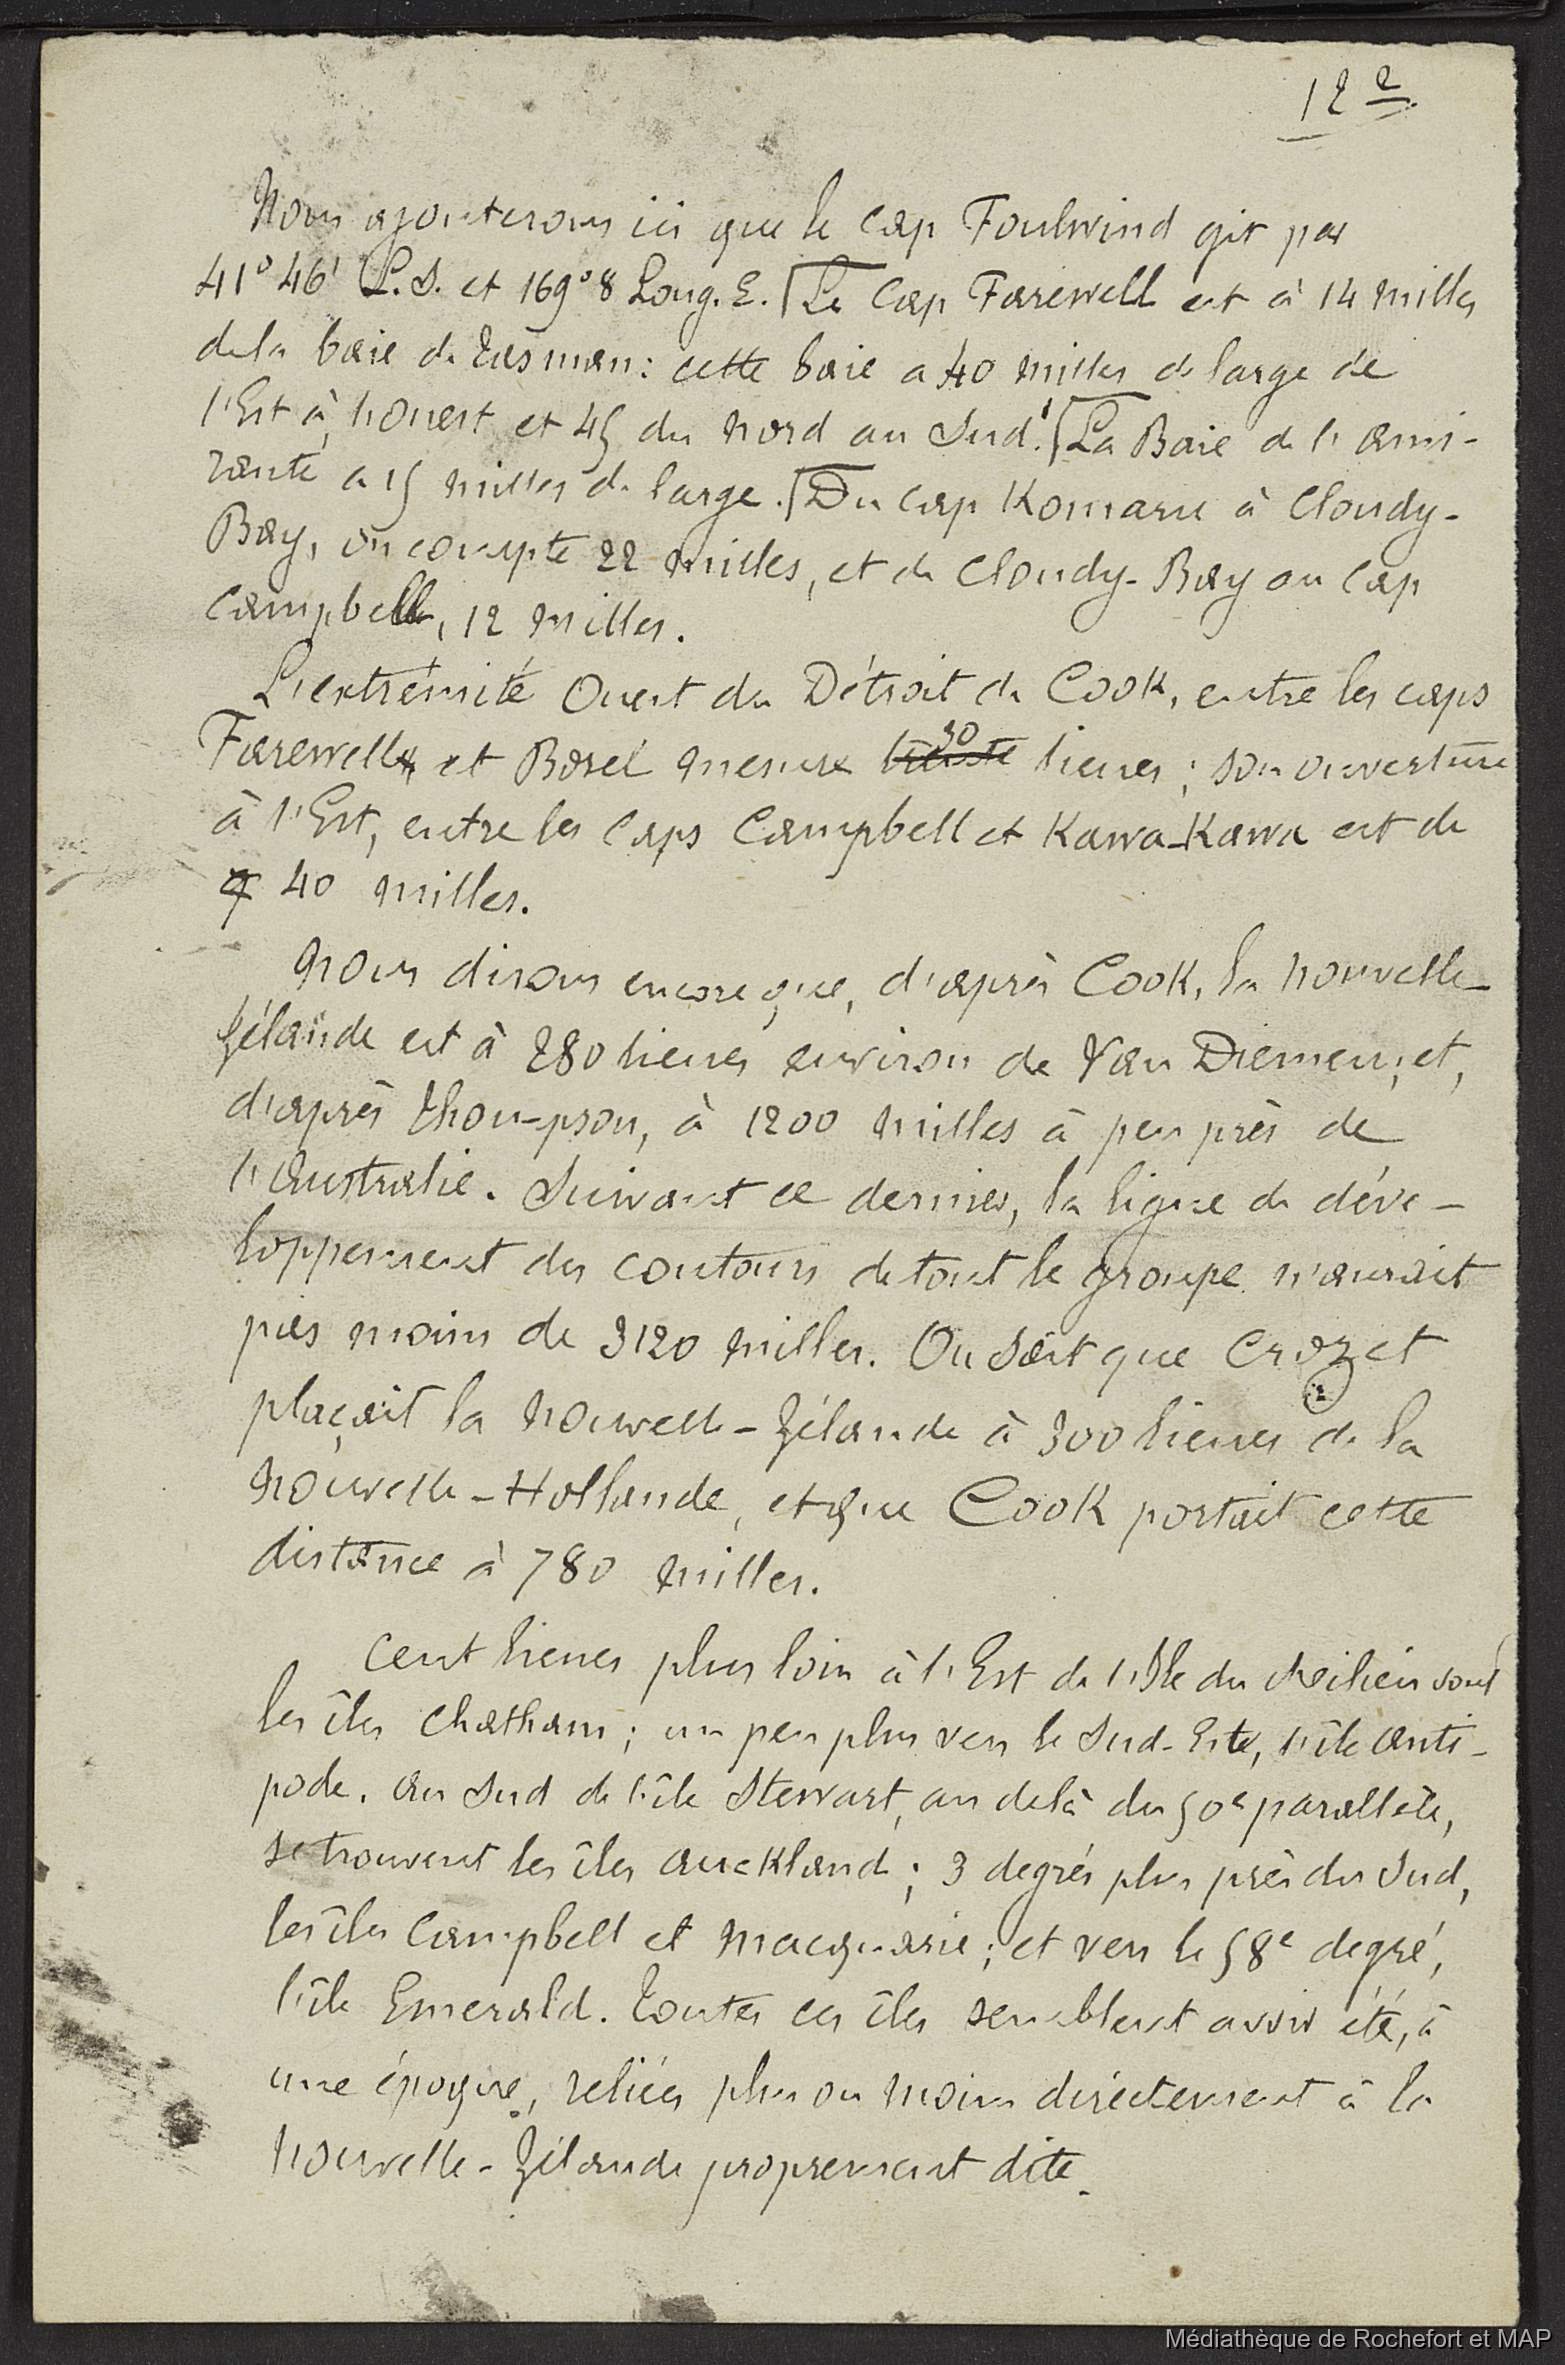 12 2
Nous ajouterons ici que le cap Foulwind git par
41° 46' L.S. et 169° 8 Long. E. Le Cap Farewell est à 14 milles
de la baie de Tasman: cette baie a 40 milles de large de
l'Est à l'ouest et 45 du nord au Sud. La Baie de l'ami-
rauté a 15 milles de large. Du cap Komaru à Cloudy-
Bay, on compte 22 milles, et de Cloudy-Bay au cap
Campbell, 12 milles.
L'extrémité Ouest du Détroit de Cook, entre les caps
Farewell et Borel mesure 30 lieues; son ouverture
à l'Est, entre les caps Campbell et Kawa-Kawa est de
40 milles.
Nous dirons encore que, d'après Cook, la Nouvelle-
Zélande est à 280 lieues environ de Van Diemen; et,
d'après Thompson, à 1200 milles à peu près de
l'Australie. Suivant ce dernier, la ligne de déve-
loppement des contours de tout le groupe n'aurait
pas moins de 3120 milles. On sait que Crozet
plaçait la Nouvelle-Zélande à 300 lieues de la
Nouvelle-Hollande, et que Cook portait cette
distance à 780 milles.
Cent lieues plus loin à l'Est de l'Ile du Milieu sont
les îles Chatham; un peu plus vers le Sud-Est, l'île Anti-
pode. Au Sud de l'île Stewart, au delà du 50e parallèle,
se trouvent les îles Auckland; 3 degrés plus près du Sud,
les îles Campbell et Macquarie; et vers le 58e degré,
l'île Emerald. Toutes ces îles semblent avoir été, à
une époque, reliées plus ou moins directement à la
Nouvelle-Zélande proprement dite.
Médiathèque de Rochefort et MAP